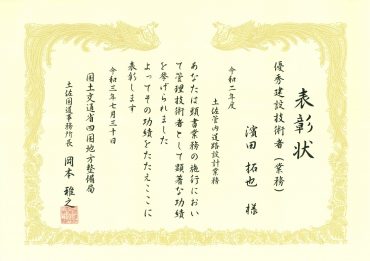 表彰状
優秀建設技術者(業務)
濱田 拓也 様
令和二年度
土佐管内道路設計業務
あなたは頭書業務の施行におい
て管理技術者として顕著な功績
を挙げられました
よってその功績をたたえここに
表彰します
令和三年七月三十日
国土交通省四国地方整備局
土佐国道事務所長 岡本 雅之